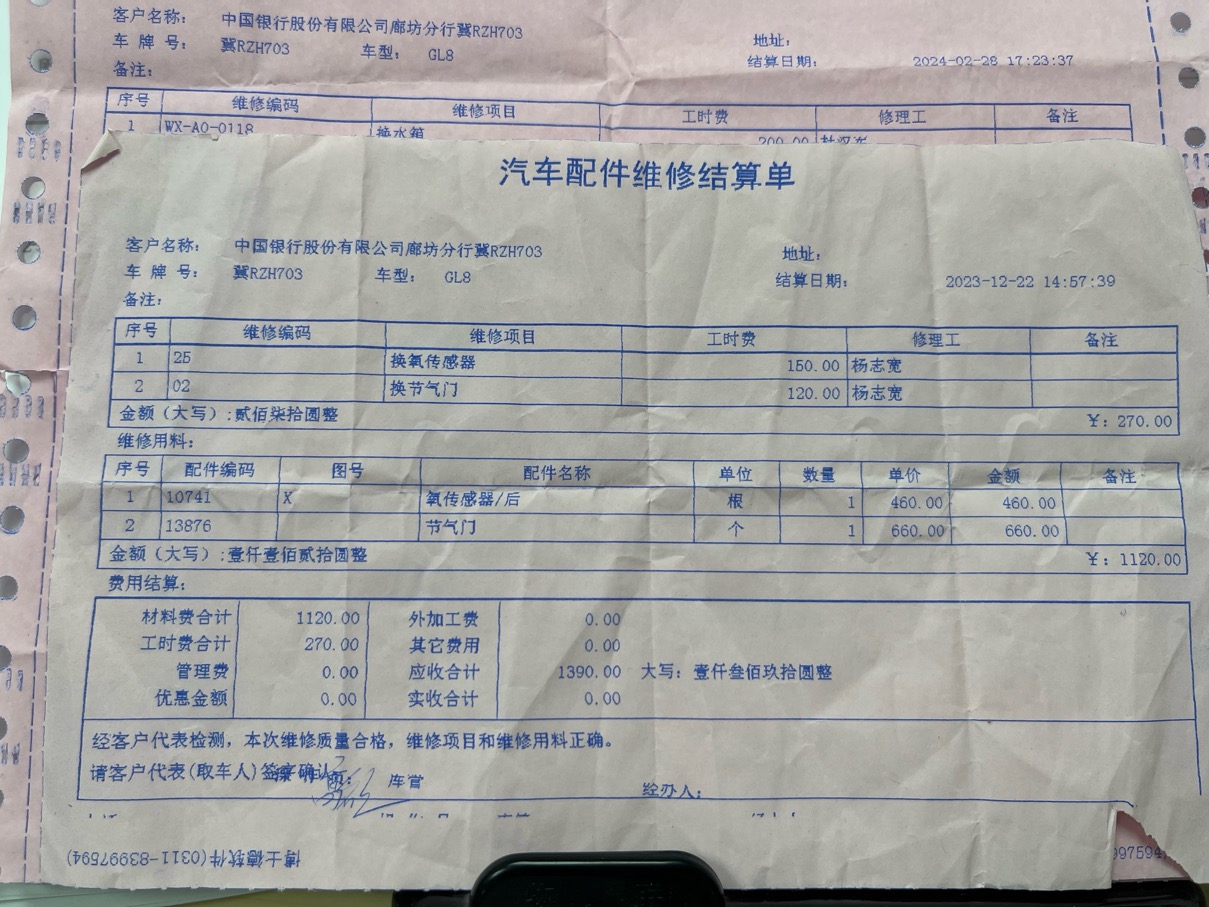 客户名称： 中国银行股份有限公司廊坊分行冀RZH703
车 牌 号： 冀RZH703 车型： GL8 地址：
备注： 结算日期： 2024-02-28 17:23:37
序号 维修编码 维修项目 工时费 修理工 备注
1 WX-A0-0118 换水箱 200.00
汽车配件维修结算单
客户名称： 中国银行股份有限公司廊坊分行冀RZH703 地址：
车 牌 号： 冀RZH703 车型： GL8 结算日期： 2023-12-22 14:57:39
备注：
序号 维修编码 维修项目 工时费 修理工 备注
1 25 换氧传感器 150.00 杨志宽
2 02 换节气门 120.00 杨志宽
金额（大写）:贰佰柒拾圆整 ￥：270.00
维修用料：
序号 配件编码 图号 配件名称 单位 数量 单价 金额 备注
1 10741 X 氧传感器/后 根 1 460.00 460.00
2 13876 节气门 个 1 660.00 660.00
金额（大写）:壹仟壹佰贰拾圆整 ￥：1120.00
费用结算：
材料费合计 1120.00 外加工费 0.00
工时费合计 270.00 其它费用 0.00
管理费 0.00 应收合计 1390.00 大写：壹仟叁佰玖拾圆整
优惠金额 0.00 实收合计 0.00
经客户代表检测，本次维修质量合格，维修项目和维修用料正确。
请客户代表(取车人)签字确认: 库管 经办人：
博士德软件(0311-83997594)
997594)